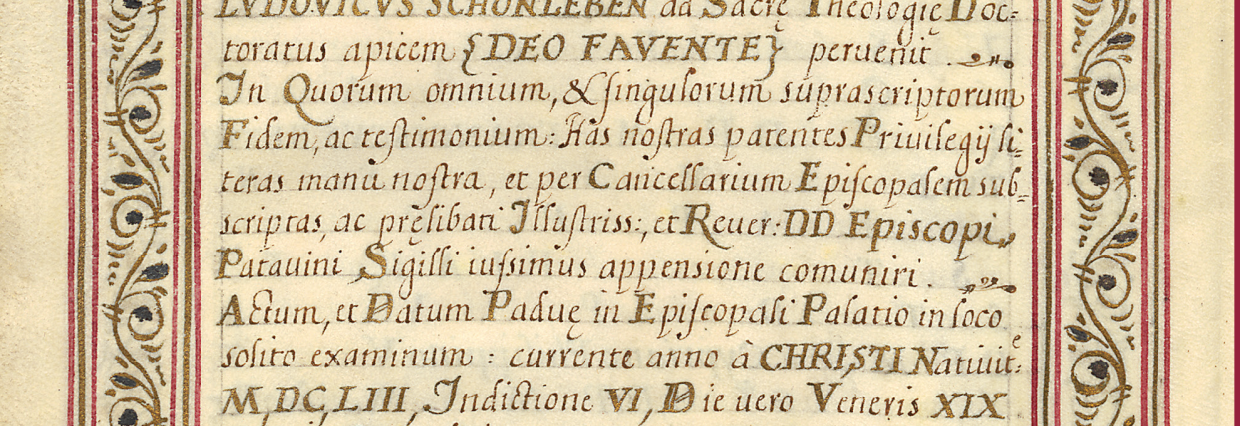 LVDOVICVS SCHÖNLEBEN ad Sacrę Theologię Doc=
toratus apicem {DEO FAVENTE} peruenit .
In Quorum omnium, & ſingulorum suprascriptorum
Fidem, ac teſtimonium: Has noſtras patentes Priuilegij li=
teras manu noſtra, et per Cancellarium Epiſcopalem sub=
scriptas, ac pręlibati Illuſtriss:, et Reuer: DD Episcopi,
Patauini Sigilli iuſsimus appensione comuniri .
Actum, et Datum Paduę in Epiſcopali Palatio in loco
solito examinum : currente anno à CHRISTI Natiuit:ͤ
M,DC,LIII, Indictione VI, Die uero Veneris XIX